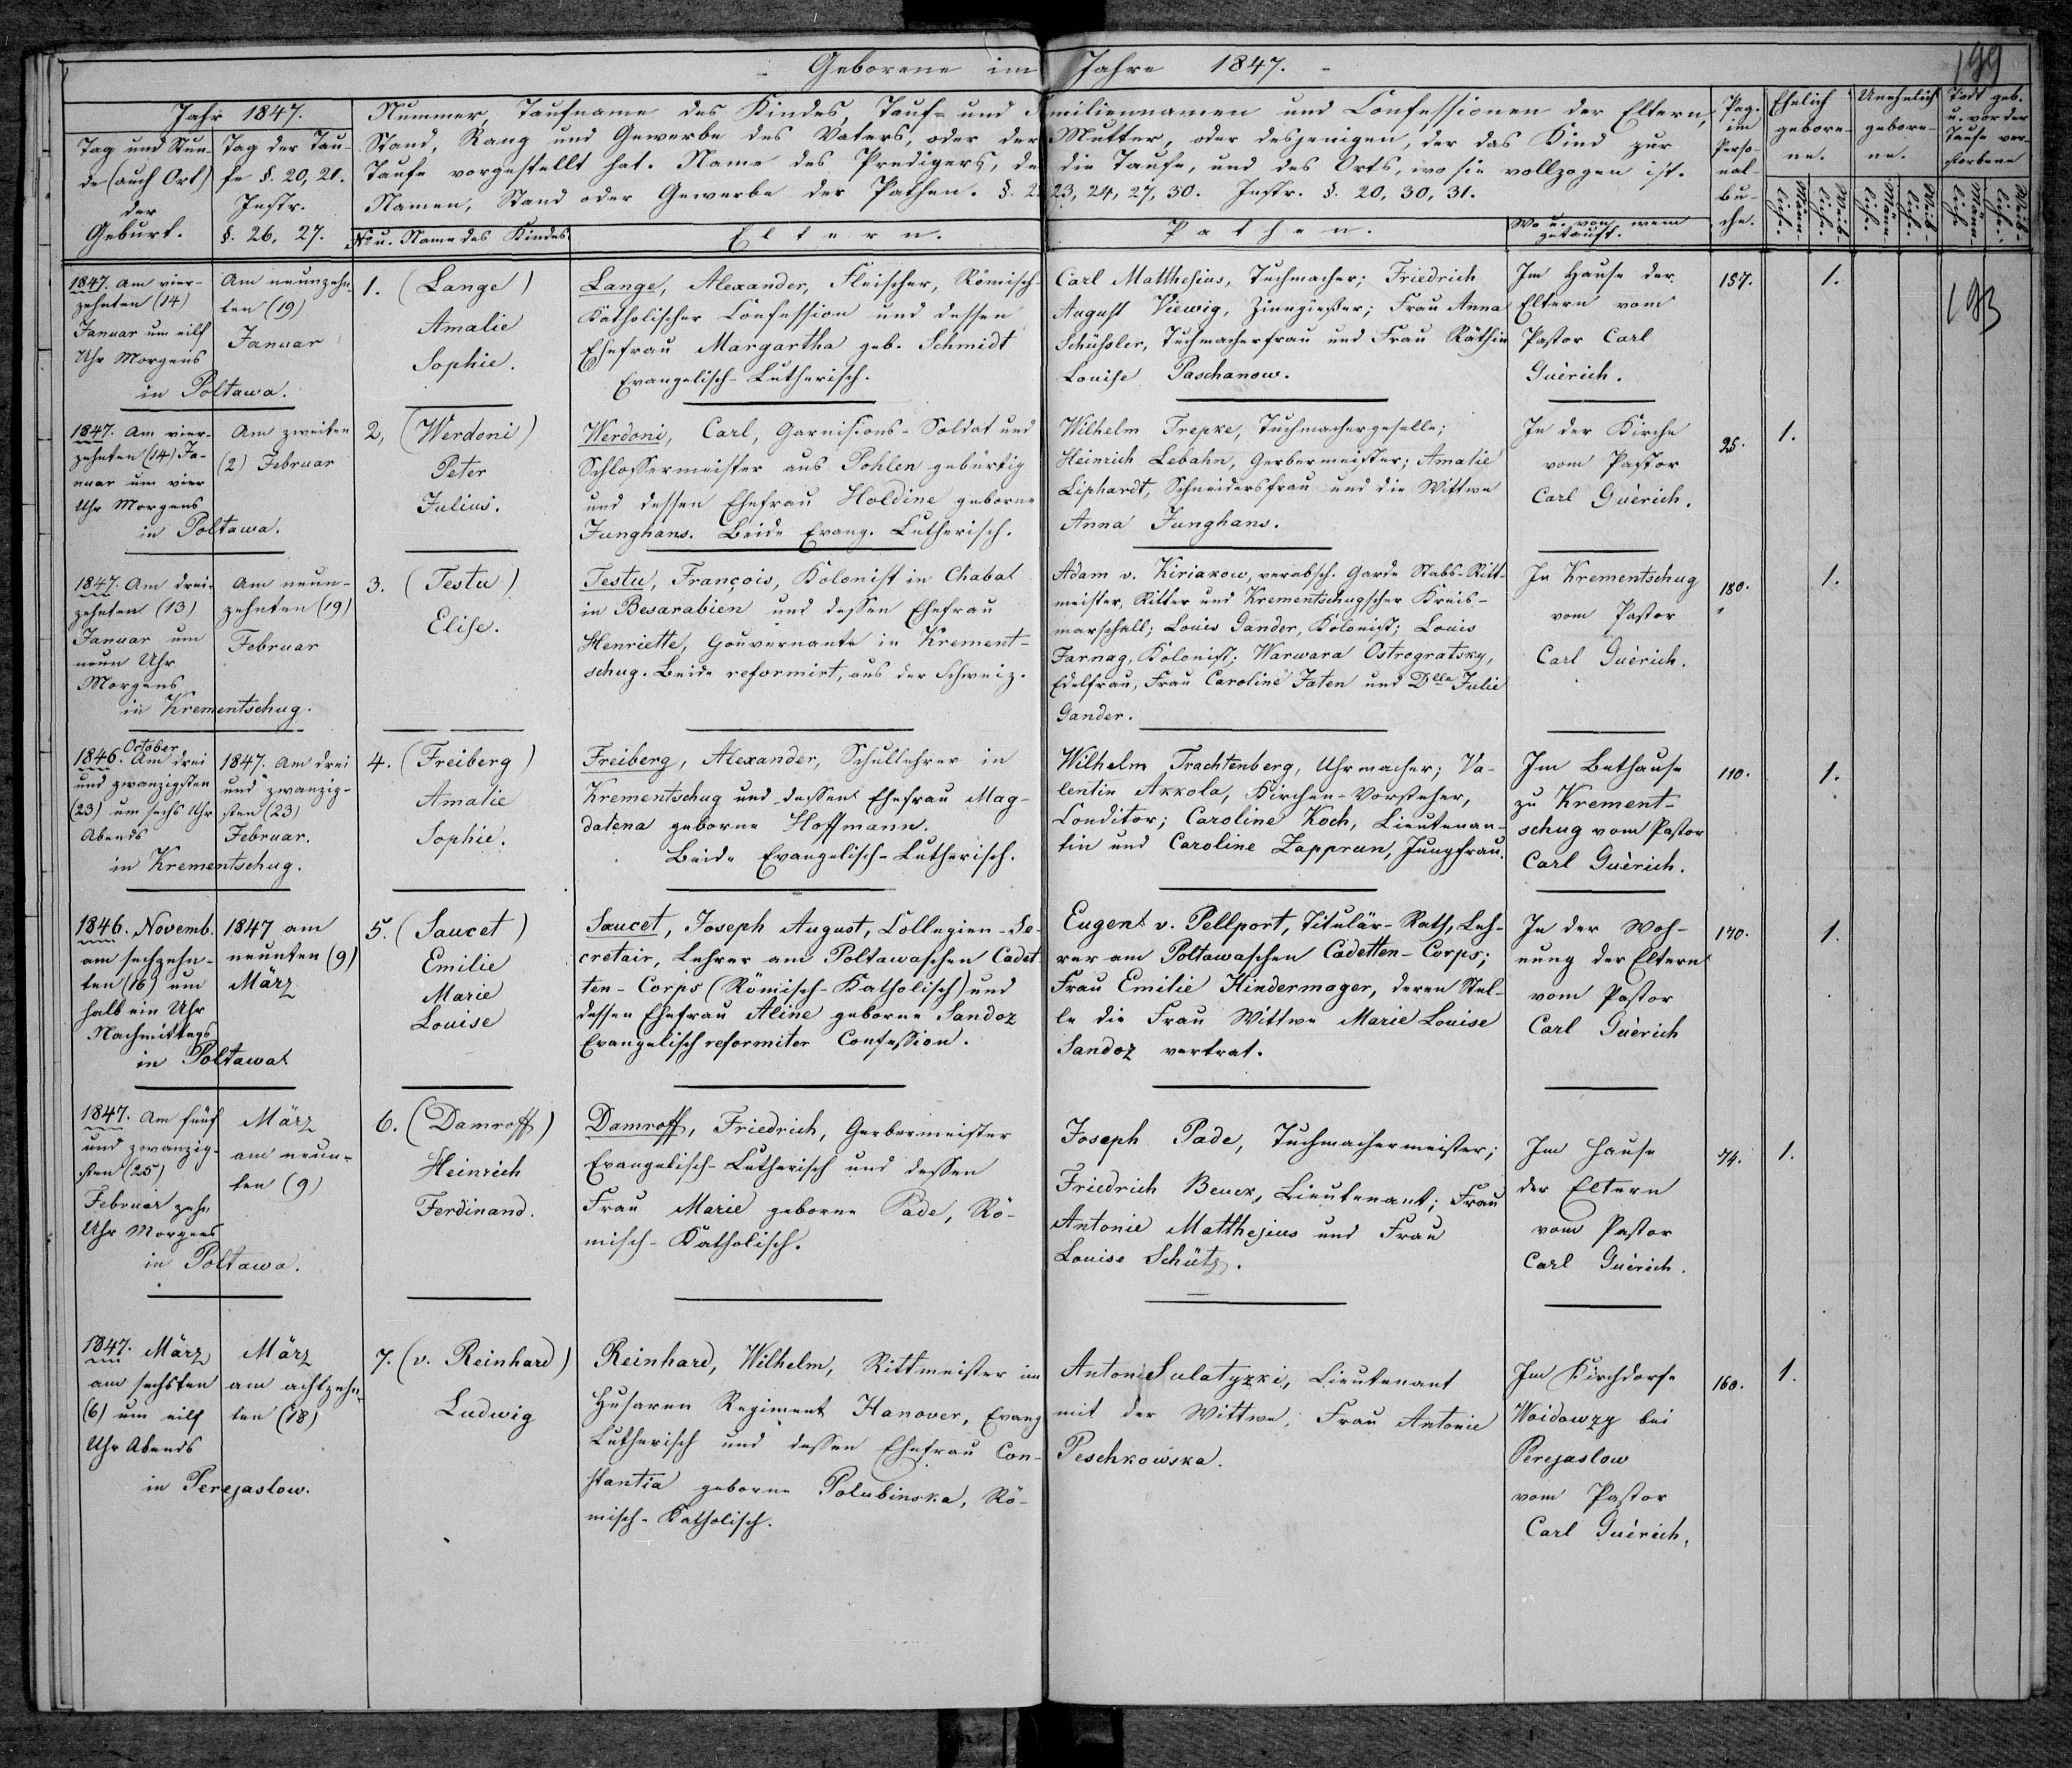 Geborene im Jahre 1847.
199
193
Jahr 1847.
Tag und Stun-
de (auch Ort)
der
Geburt.
Tag der Tau-
fe §. 20, 21.
Instr.
§. 26, 27.
Nummer, Taufname des Kindes, Tauf- und Familiennamen und Confessionen der Eltern,
Stand, Rang und Gewerbe des Vaters, oder der Mutter, oder desjenigen, der das Kind zur
Taufe vorgestellt hat. Name des Predigers, de die Taufe, und des Orts, wo sie vollzogen ist.
Namen, Stand oder Gewerbe der Pathen. §. 23, 24, 27, 30. Instr. §. 20, 30, 31.
No u. Name des Kindes.
Eltern.
Pathen.
Wo u. von wem
getauft.
Pag.
im
Perso-
nal-
bu-
che.
Ehelich
gebore-
ne.
Unehelich
gebore-
ne.
Todt geb.
u. vor der
Taufe ver-
storbene
Männ-
liche.
Weib-
liche.
Männ-
liche.
Weib-
liche.
Männ-
liche.
Weib-
liche.
1847. Am vier-
zehnten (14)
Januar um eilf
Uhr Morgens
in Poltawa.
Am neunzehn-
ten (19)
Januar
1. (Lange)
Amalie
Sophie.
Lange, Alexander, Fleischer, Römisch-
Katholischer Confession und dessen
Ehefrau Margartha geb. Schmidt
Evangelisch-Lutherisch.
Carl Matthesius, Tuchmacher; Friedrich
August Viewig, Zinngießer; Frau Anna
Schüssler, Tuchmacherfrau und Frau Räthin
Louise Paschanow.
Im Hause der
Eltern vom
Pastor Carl
Guérich.
157.
1.
1847. Am vier-
zehnten (14) Ja-
nuar um vier
Uhr Morgens
in Poltawa.
Am zweiten
(2) Februar
2, (Werdoni)
Peter
Julius.
Werdoni, Carl, Garnisons-Soldat und
Schlossermeister aus Pohlen gebürtig
und dessen Ehefrau Holdine geborne
Junghans. Beide Evang. Lutherisch.
Wilhelm Trepke, Tuchmachergeselle;
Heinrich Lebahn, Gerbermeister; Amalie
Liphardt, Schneidersfrau und die Wittwe
Anna Junghans.
In der Kirche
vom Pastor
Carl Guérich.
25.
1.
1847. Am drei-
zehnten (13)
Januar um
neun Uhr
Morgens
in Krementschug.
Am neun-
zehnten (19)
Februar
3. (Testu)
Elise.
Testu, François, Kolonist in Chabat
in Besarabien und dessen Ehefrau
Henriette, Gouvernante in Krement-
schug. Beide reformirt, aus der Schweiz.
Adam v. Kiriakow, verabsch. Garde Stabs-Ritt-
meister, Ritter und Krementschugscher Kreis-
marschall; Louis Gander, Kolonist; Louis
Jarnag, Kolonist; Warwara Ostrogratsky,
Edelfrau, Frau Caroline Jaten und Dlle Julie
Gander.
In Krementschug
vom Pastor
Carl Guérich.
180.
1.
October
1846. Am drei
und zwanzigsten
(23) um sechs Uhr
Abends
in Krementschug.
1847. Am drei
und zwanzig-
sten (23)
Februar.
4. (Freiberg)
Amalie
Sophie.
Freiberg, Alexander, Schullehrer in
Krementschug und dessen Ehefrau Mag-
dalena geborne Hoffmann.
Beide Evangelisch-Lutherisch.
Wilhelm Trachtenberg, Uhrmacher; Va-
lentin Akkola, Kirchen-Vorsteher,
Conditor; Caroline Koch, Lieutenan-
tin und Caroline Zapprun, Jungfrau.
Im Bethause
zu Krement-
schug vom Pastor
Carl Guérich.
110.
1.
1846. Novemb.
am sechzehn-
ten (16) um
halb ein Uhr
Nachmittags
in Poltawa
1847 am
neunten (9)
März
5. (Saucet)
Emilie
Marie
Louise
Saucet, Joseph August, Collegien-Se-
cretair, Lehrer am Poltawaschen Cadet-
ten-Corps (Römisch-Katholisch) und
dessen Ehefrau Aline geborne Sandoz
Evangelisch reformirter Confession.
Eugen v. Pellport, Titulär-Rath, Leh-
rer am Poltawaschen Cadetten-Corps;
Frau Emilie Hindermager, deren Stel-
le die Frau Wittwe Marie Louise
Sandoz vertrat.
In der Woh-
nung der Eltern
vom Pastor
Carl Guérich
170.
1.
1847. Am fünf
und zwanzig-
sten (25)
Februar zehn
Uhr Morgens
in Poltawa.
März
am neun-
ten (9)
6. (Damroff)
Heinrich
Ferdinand.
Damroff, Friedrich, Gerbermeister
Evangelisch-Lutherisch und dessen
Frau Marie geborne Pade, Rö-
misch-Katholisch.
Joseph Pade, Tuchmachermeister;
Friedrich Beuck, Lieutenant; Frau
Antonie Matthesius und Frau
Louise Schütz.
Im Hause
der Eltern
vom Pastor
Carl Guérich.
74.
1.
1847. März
am sechsten
(6) um eilf
Uhr Abends
in Perejaslow.
März
am achtzehn-
ten (18)
7. (v. Reinhard)
Ludwig
Reinhard, Wilhelm, Rittmeister im
Husaren Regiment Hanover, Evang
Lutherisch und dessen Ehefrau Con-
stantia geborne Polubinska, Rö-
misch-Katholisch.
Anton Sulatyzki, Lieutenant
mit der Wittwe, Frau Antonie
Peschkowska.
Im Kirchdorfe
Woidowzy bei
Perejaslow
vom Pastor
Carl Guérich.
160.
1.